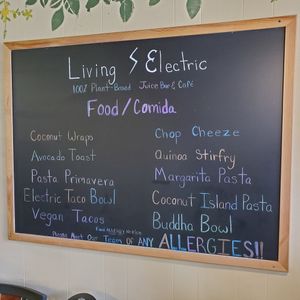 Living Electric
100% Plant-Based Juice Bar & Café
Food/Comida
Coconut Wraps
Avocado Toast
Pasta Primavera
Electric Taco Bowl
Vegan Tacos
Chop Cheeze
Quinoa Stirfry
Margarita Pasta
Coconut Island Pasta
Buddha Bowl
Food Allergy Notice
Please Alert Our Team of ANY ALLERGIES!!